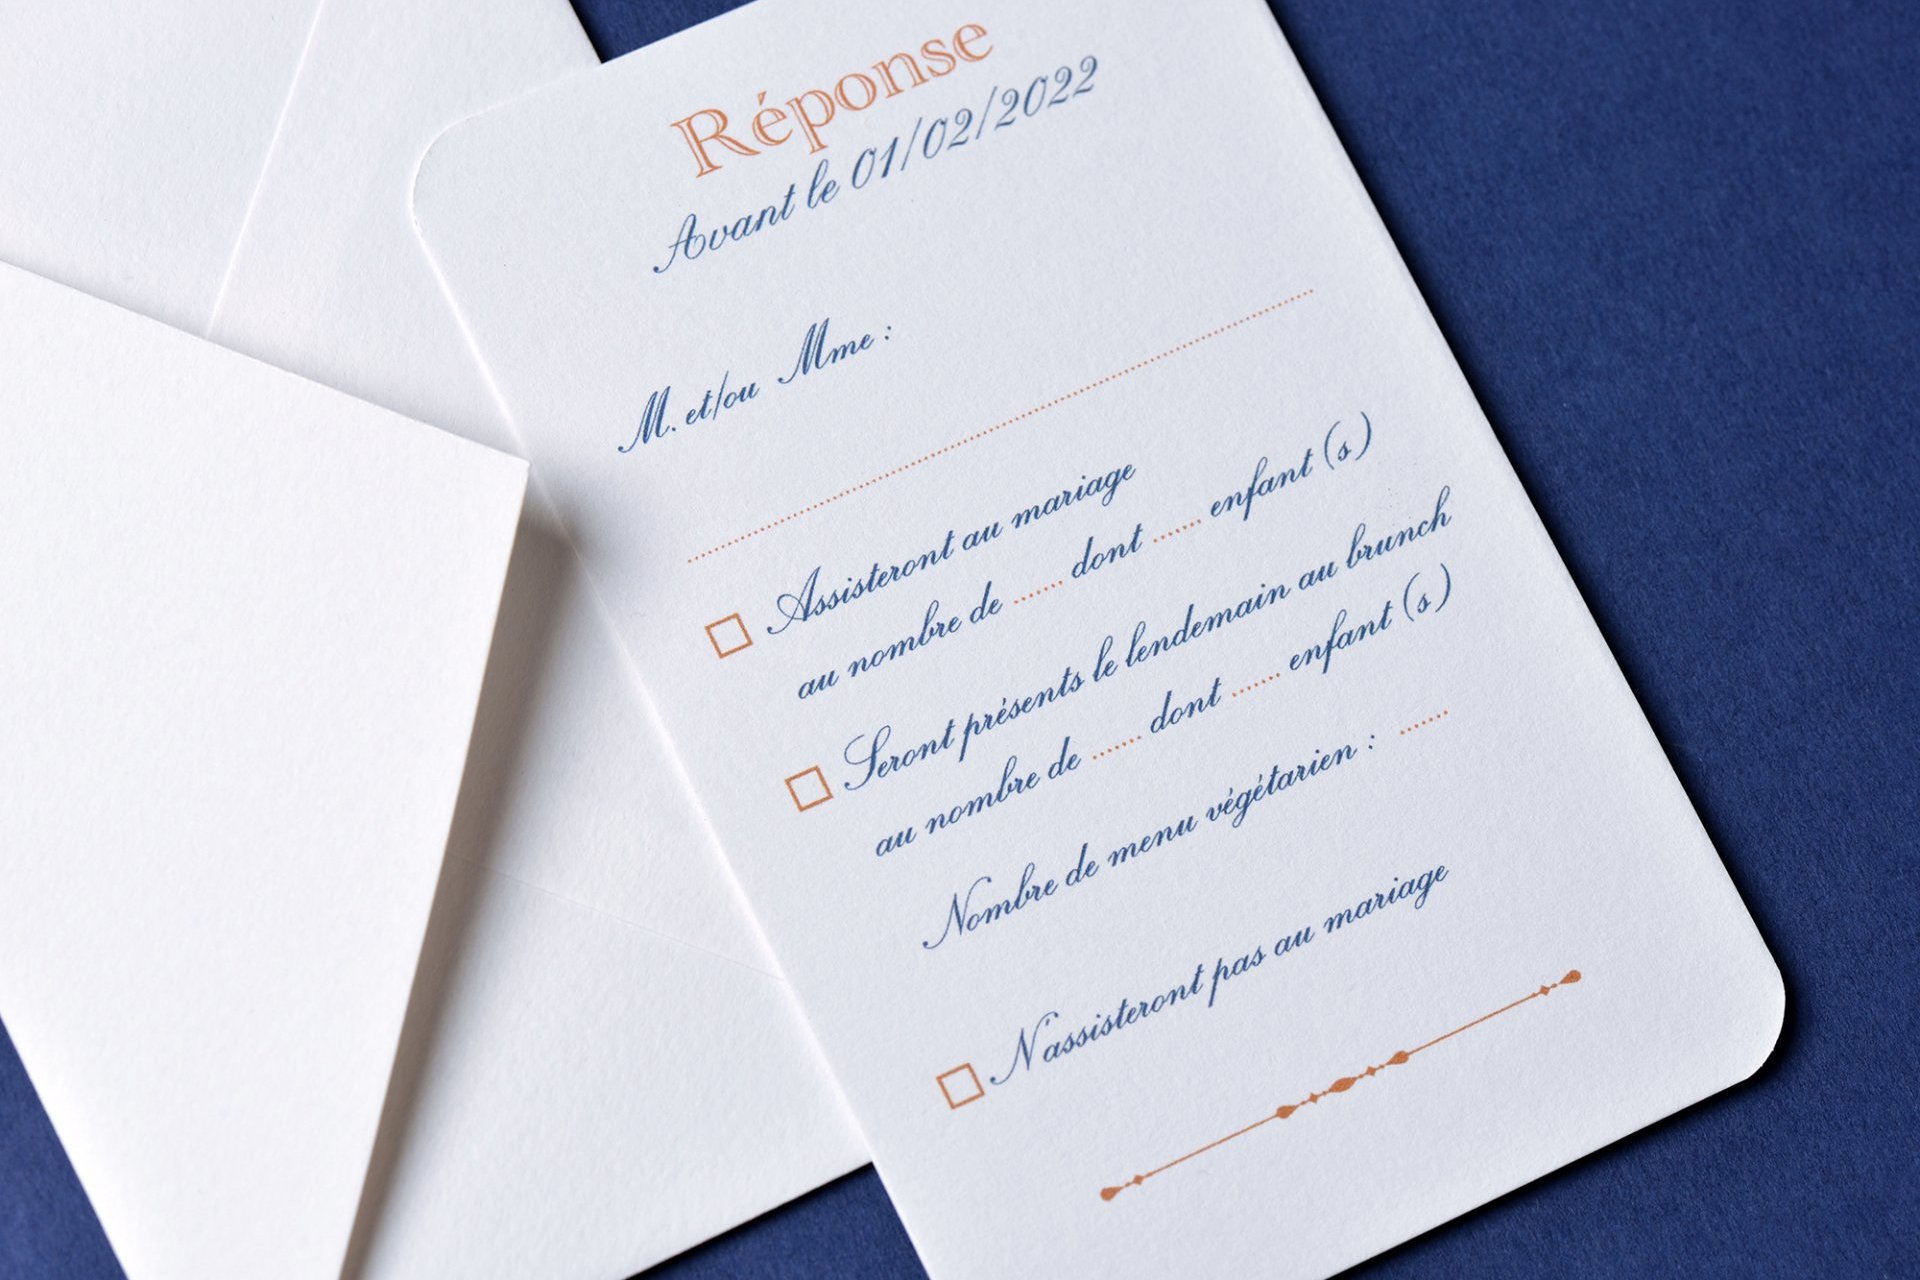 Réponse
Avant le 01/02/2022
M. et/ou Mme :
Assisteront au mariage
au nombre de ....... dont ....... enfant (s)
Seront présents le lendemain au brunch
au nombre de ....... dont ....... enfant (s)
Nombre de menu végétarien : .......
N'assisteront pas au mariage